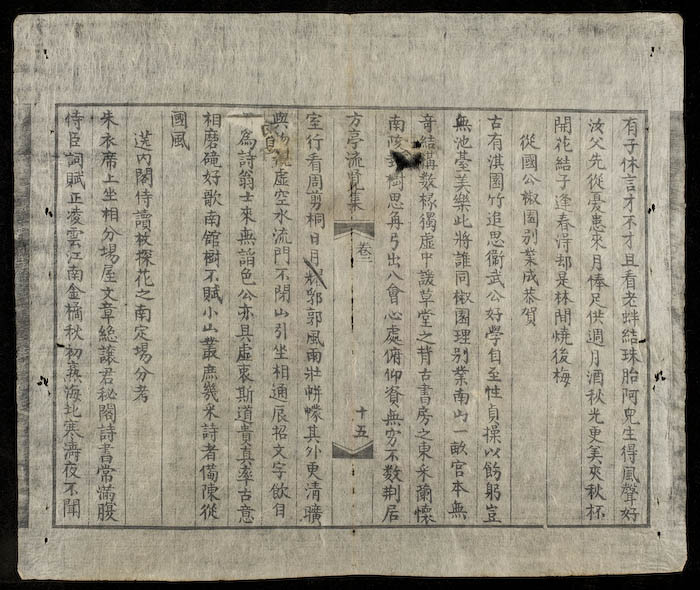 有子休言才不才且看老蚌結珠胎阿兒生得風聲好
汝父先從憂患來月俸足供調月酒秋光更美夾秋杯
開花結子逢春浔却是林間燒後梅
從國公椒園別業成恭賀
古有淇園竹追思衞武公好學自至性貞操以飭躬豈
無池臺美樂此將誰同椒園理別業南山一畝宮本無
奇結搆数椽獨虚中諼草堂之背古書房之東采蘭懷
南陔 樹思角弓出入會心處俯仰資無穷不数荆居
方亭流览集
卷三
十五
室行看周剪桐日月 郛郭風南壯帡幪其外更清曠
與 虚空水流門不閉山引坐相通辰招文字飲自
為詩翁士來無諂色公亦具虚衷斯道貴真率古意
相磨礲好歌南館樹不賦小山叢庶幾采詩者備陳從
國風
送内閣侍讀枚探花之南定場分考
朱衣席上坐相分場屋文章緫讓君秘閣詩書常滿腹
侍臣詞賦正凌雲江南金橘秋初熹海北寒濤夜不聞